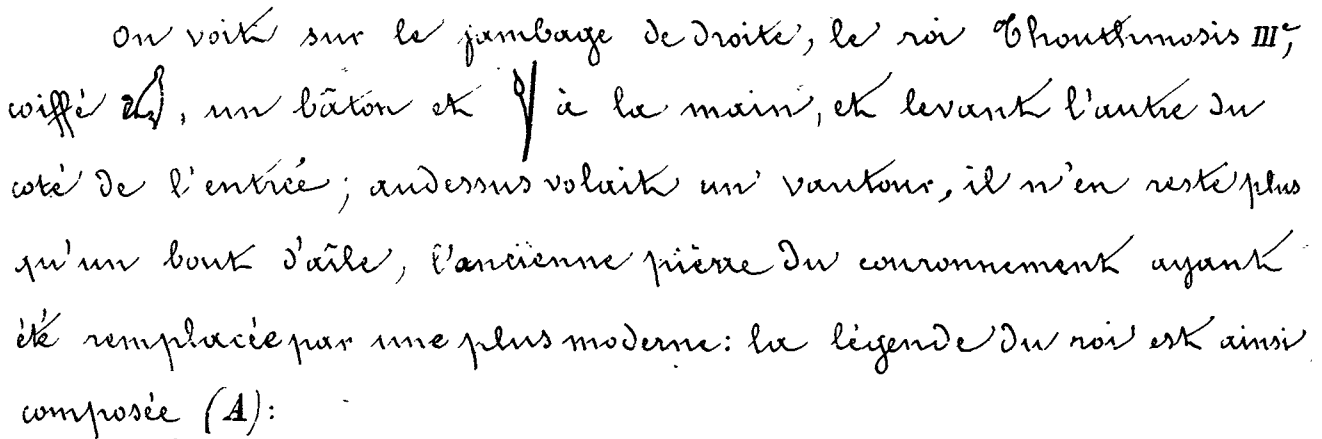 On voit sur le jambage de droite, le roi Thouthmosis III<sup>e</sup>,
coiffé du, un bâton et à la main, et levant l'autre du
coté de l'entrée; audessus volait un vautour, il n'en reste plus
qu'un bout d'aîle, l'ancienne pièrre du couronnement ayant
été remplacée par une plus moderne: la légende du roi est ainsi
composée (A):